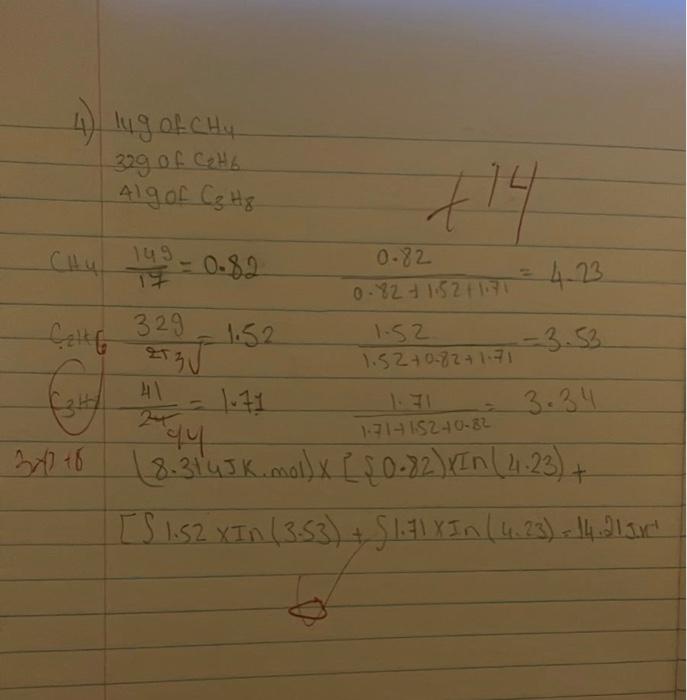 4) 14g of CH4
32g of C2H6
41g of C3H8
+14
CH4 14g/17 = 0.82 0.82/0.82+1.52+1.71 = 4.23
C2H6 32g/ = 1.52 1.52/1.52+0.82+1.71 = 3.53
C3H 41/24 = 1.71 1.71/1.71+1.52+0.82 = 3.34
44
(8.314JK.mol) x [{0.82) x In (4.23) +
[{ 1.52 x In (3.53) + { 1.71 x In (4.23) = 14.21J.K-1